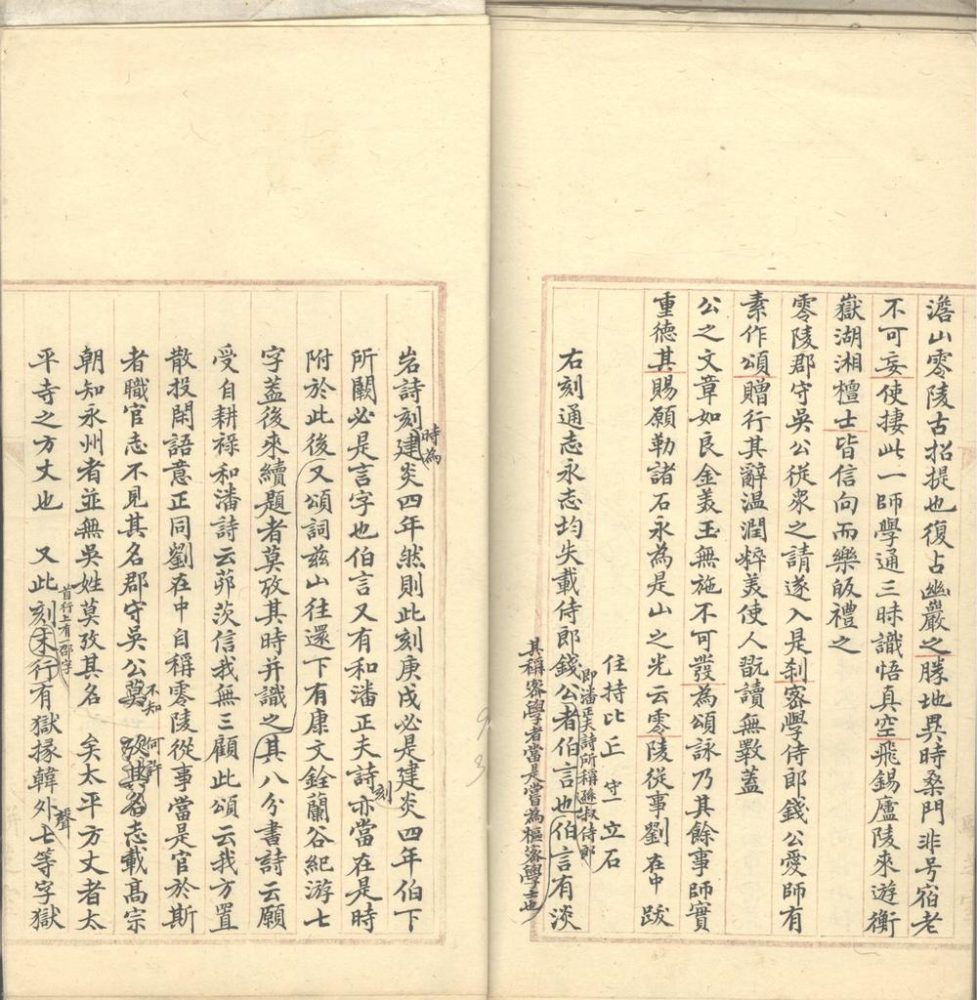 澹山零陵古招提也復占幽巖之勝地異時桑門非号宿老
不可妄使捿此一師學通三昧識悟真空飛錫廬陵來遊衡
嶽湖湘檀士皆信向而樂皈禮之
零陵郡守吳公從衆之請遂入是刹密學侍郎錢公愛師有
素作頌贈行其辭温潤粹美使人翫讀無斁蓋
公之文章如良金美玉無施不可發為頌詠乃其餘事師實
重德其賜願勒諸石永為是山之光云零陵從事劉在中跋
住持比丘 守一 立石
右刻通志永志均失載侍郎錢公者伯言也伯言有淡
即潘正夫詩所稱孫叔侍郎
其稱密學者當是嘗為樞密學士也
岩詩刻建炎四年然則此刻庚戌必是建炎四年伯下
時為
所闕必是言字也伯言又有和潘正夫詩亦當在是時
刻
附於此後又頌詞兹山往還下有康文銓蘭谷紀游七
字蓋後來續題者莫攷其時并識之其八分書詩云願
受自耕祿和潘詩云茆茨信我無三顧此頌云我方置
散投閑語意正同劉在中自稱零陵從事當是官於斯
者職官志不見其名郡守吳公莫攷其名志載髙宗
不知何許
朝知永州者並無吳姓莫攷其名 矣太平方丈者太
平寺之方丈也 又此刻末行有獄掾韓外七等字獄
首行上有一邵字
聲